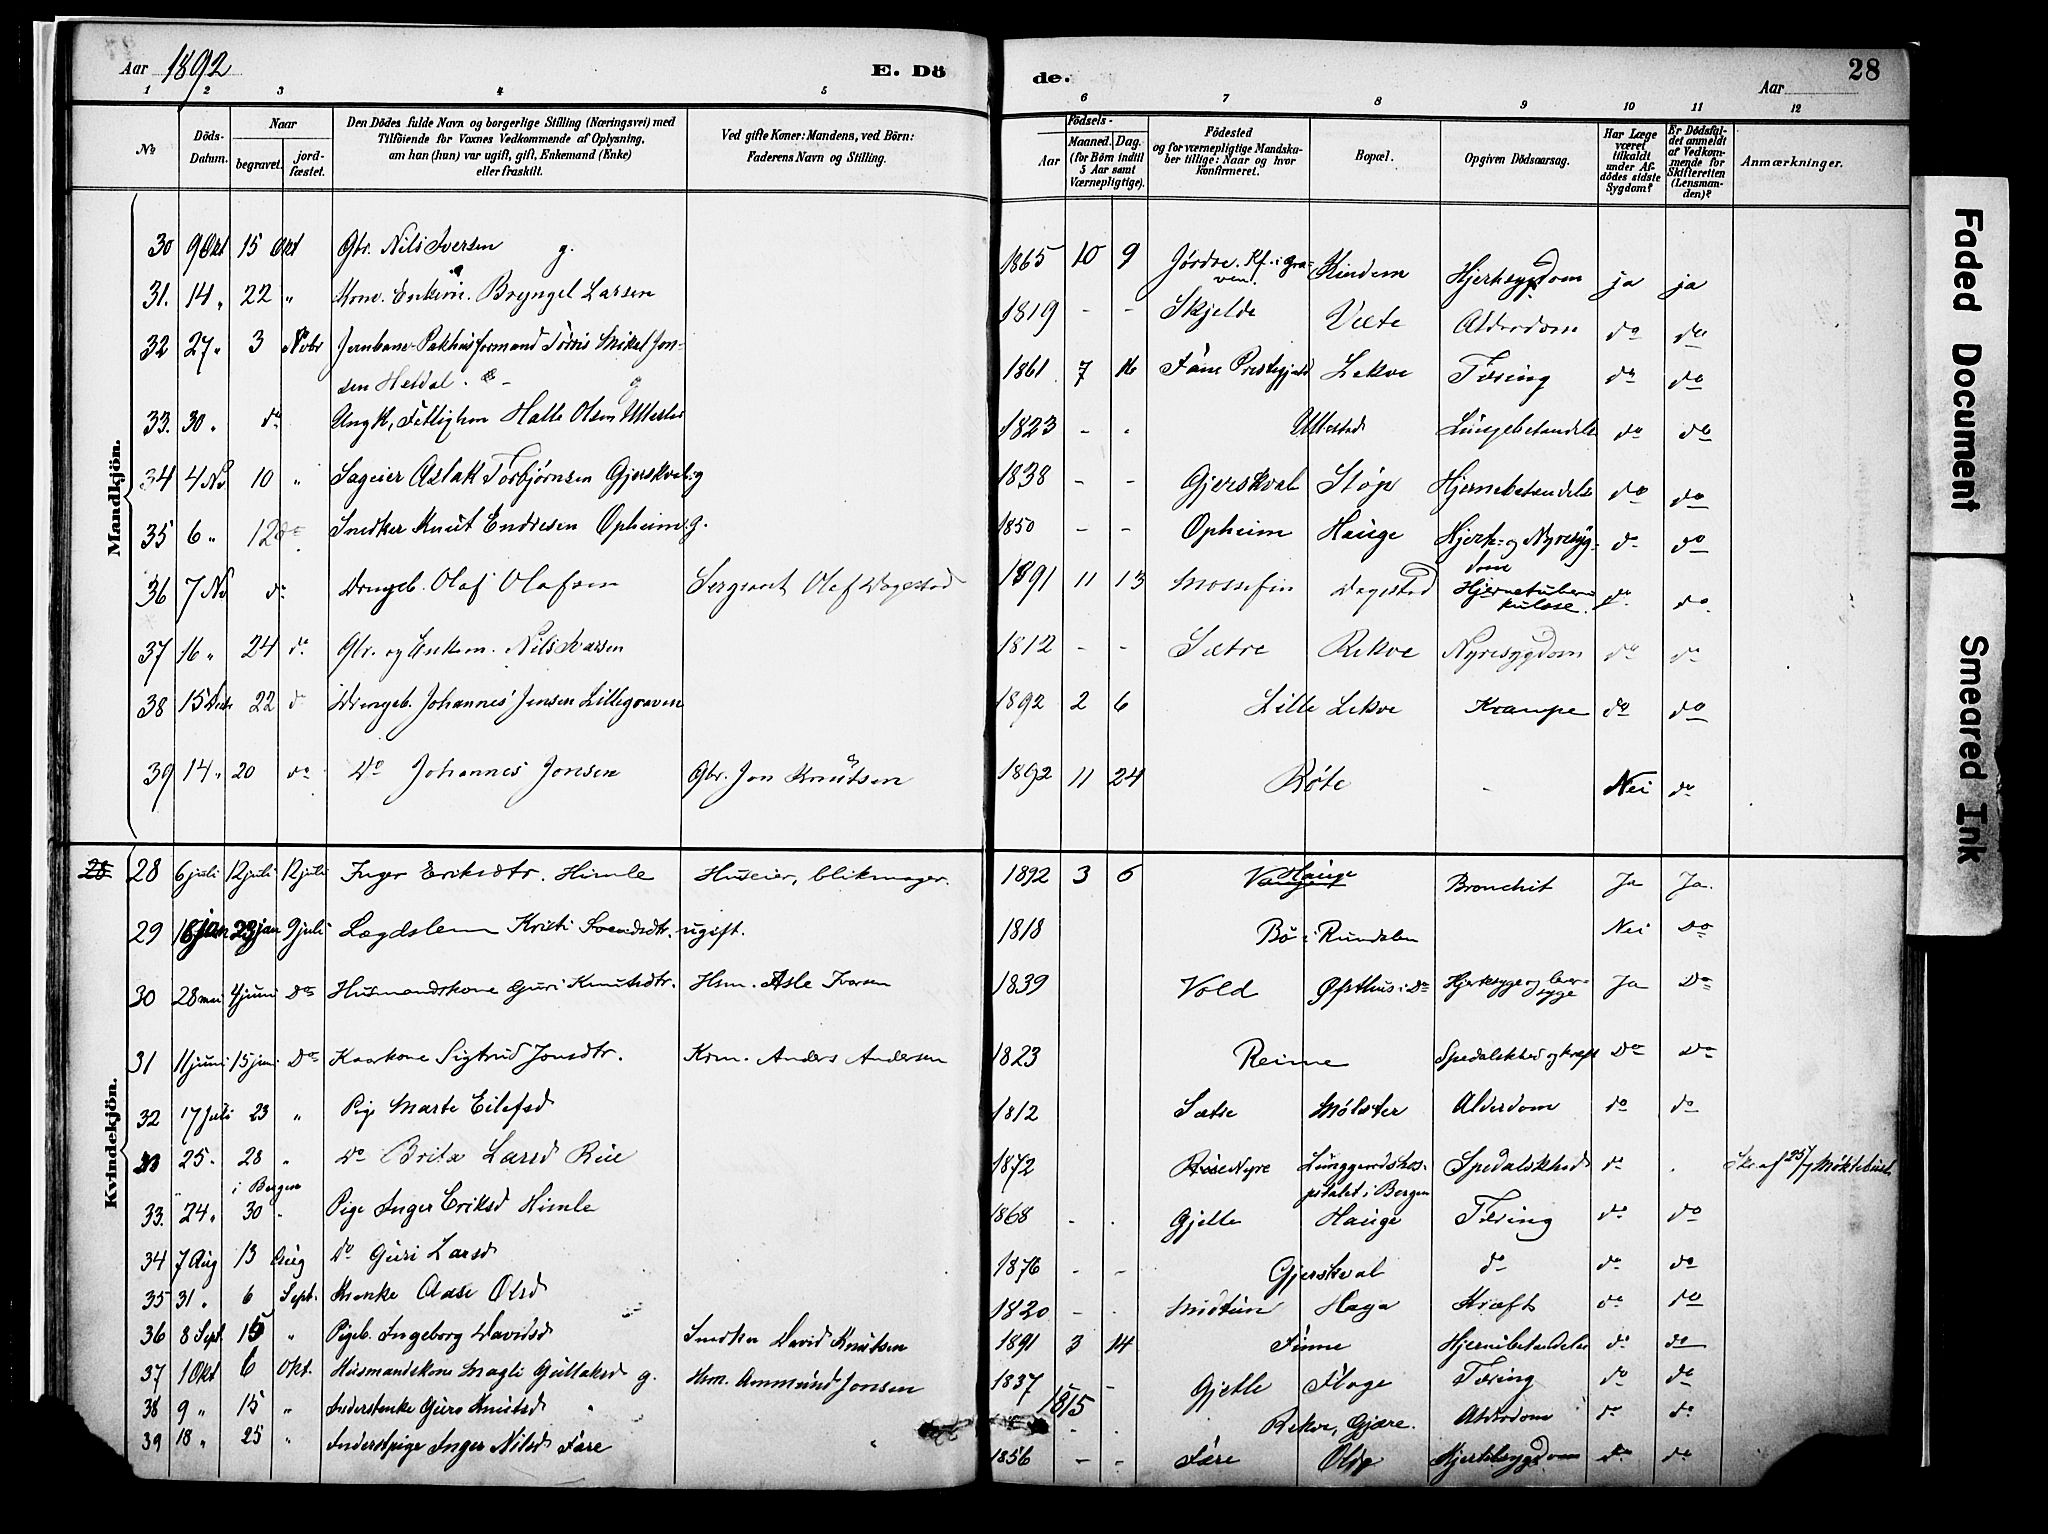 Aar 1892 E. Dö
de. Aar 28
1 2 3 4 5 6 7 8 9 10 11 12
No Döds-Datum. Naar begravet. jord-fæstet. Den Dödes fulde Navn og borgerlige Stilling (Næringsvei) med Tilföiende for Voxnes Vedkommende af Oplysning, om han (hun) var ugift, gift, Enkemand (Enke) eller fraskilt. Ved gifte Koner: Mandens, ved Börn: Faderens Navn og Stilling.
Födsels- Aar Maaned. Dag. (for Börn indtil 5 Aar samt Værnepligtige). Födested og for værnepligtige Mandskaber tillige: Naar og hvor konfirmeret. Bopæl. Opgiven Dödsaarsag. Har Læge været tilkaldt under Afdödes sidste Sygdom? Er Dödsfaldet anmeldt af Vedkommende for Skifteretten (Lensmanden)? Anmærkninger.
Mandkjön.
30 9 Okt 15 Okt Gbr. Nils Iversen g. 1865 10 9 Jördre. Kf. i Graven. Kindem Hjertesygdom ja ja
31. 14 " 22 " Kom. Enkem. Bryngel Larsen 1819 - - Skjelde Væte Alderdom do do
32 27 " 3 Novbr Jernbane-Pakhusformand Mikel Jon-
sen Heldal. 1861 7 16 Fane Prestegjeld Lekve Tæring do do
33. 30 " do Ungk, Fattiglem Halle Olsen Ullestad 1823 - - Ullestad Lungebetændelse do do
34 4 Nov 10 " Sageier Aslak Torbjørnsen Gjerskval g 1838 - - Gjerskval Hjernebetændelse do do
35 6 " 12 do Snedker Knut Endresen Opheim g. 1850 - - Opheim Hauge Hjerte- og Nyresyg-
dom do do
36 7 No do Drengeb. Olaf Olafsen Sergeant Olaf Dagestad 1891 11 13 Mossefin Dagestad Hjernetuber-
kulose. do do
37 16 " 24 do Gbr. og Enkem. Nils Ivarsen 1812 - - Sætre Rekve Nyresygdom do do
38 15 Decb 22 do Drengeb. Johannes Jensen Lillegraven 1892 2 6 Lille Lekve Krampe do do
39 14 " 20 do Do Johannes Jonsen Gbr. Jon Knutsen 1892 11 24 Røte - Nei do
Kvindekjön.
28 28 6 juli 12 juli 12 juli Inger Eriksdtr. Himle Huseier, blikmager. 1892 3 6 Vangen Hauge Bronchit Ja Ja.
29 18 jan 23 jan 9 juli Lægdslem Kristi Svendsdtr. ugift. 1818 Bö i Rundalen Nei Do
30 28 mai 4 juni Do Husmandskone Guri Knutsdtr. Hsm. Asle Ivarsen 1839 Vold Østhus i Do Hjertesyge og lever-
syge Ja Do
31 11 juni 15 juni Do Kaarkone Sigtrud Jonsdtr. Krm. Anders Andersen 1823 Reime Spedalskhed og kræft Do Do
32 17 Juli 23 " Pige Marte Eilefsd 1812 Sætre Mölster Alderdom do do
33 25 " 28 " Do Brita Larsd Rue 1872 Nyre Lunggaardshos-
pitalet i Bergen Spedalskhed do Skr. af 25/7
i Bergen
33. 24 " 30 " Pige Inger Eriksd Himle 1868 - - Gjelle Hauge Tæring do do
34 7 Aug 13 Aug Do Guri Larsd 1876 - - Gjerskval do do do
35 31 " 6 Sept. Enke Aase Olsd 1820 - - Midtun Haga Kræft do do
36 8 Sept 15 " Pigeb. Ingeborg Davidsd Snedker David Knutsen 1891 3 14 Finne Hjernebetændelse do do
37 1 Okt 6 Okt. Husmandskone Magli Gullaksd g. Hsm. Ammund Jonsen 1837 - Gjelle Flage Tæring do do
38 9 " 15 " Inderstenke Guro Knutsd 1815 - - Rekve, Gjære. Alderdom do do
39 18 " 25 " Inderstpige Inger Nilsd Fære 1856 - - Fære Hjertesygdom do do
Faded Document
Smeared Ink